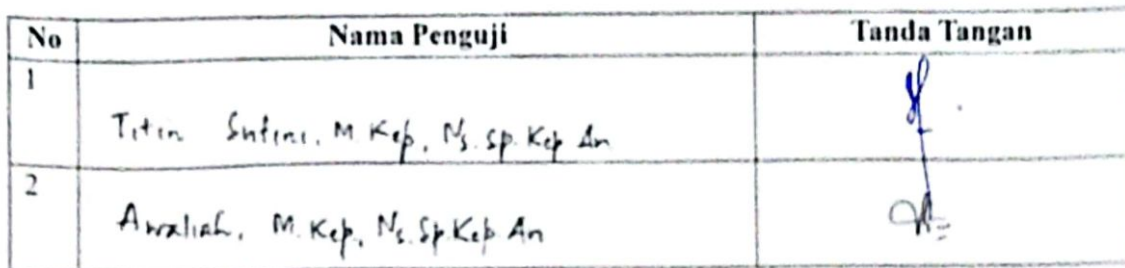 No Nama Penguji Tanda Tangan
1
Titin Sutini, M. Kep, Ns. Sp. Kep An
2
Awaliah, M. Kep, Ns. Sp. Kep. An